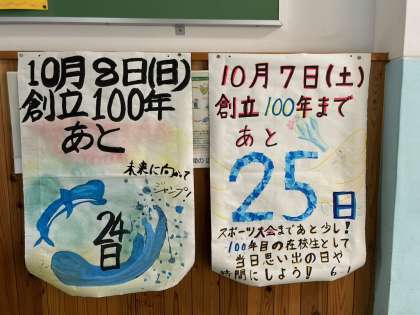 10月8日(日)
創立100年
あと
未来に向かって
ジャンプ!
24
日
10月7日(土)
創立100年まで
あと
25日
スポーツ大会まであと少し!
100年目の在校生として
当日思い出の日や
時間にしよう! 6-1